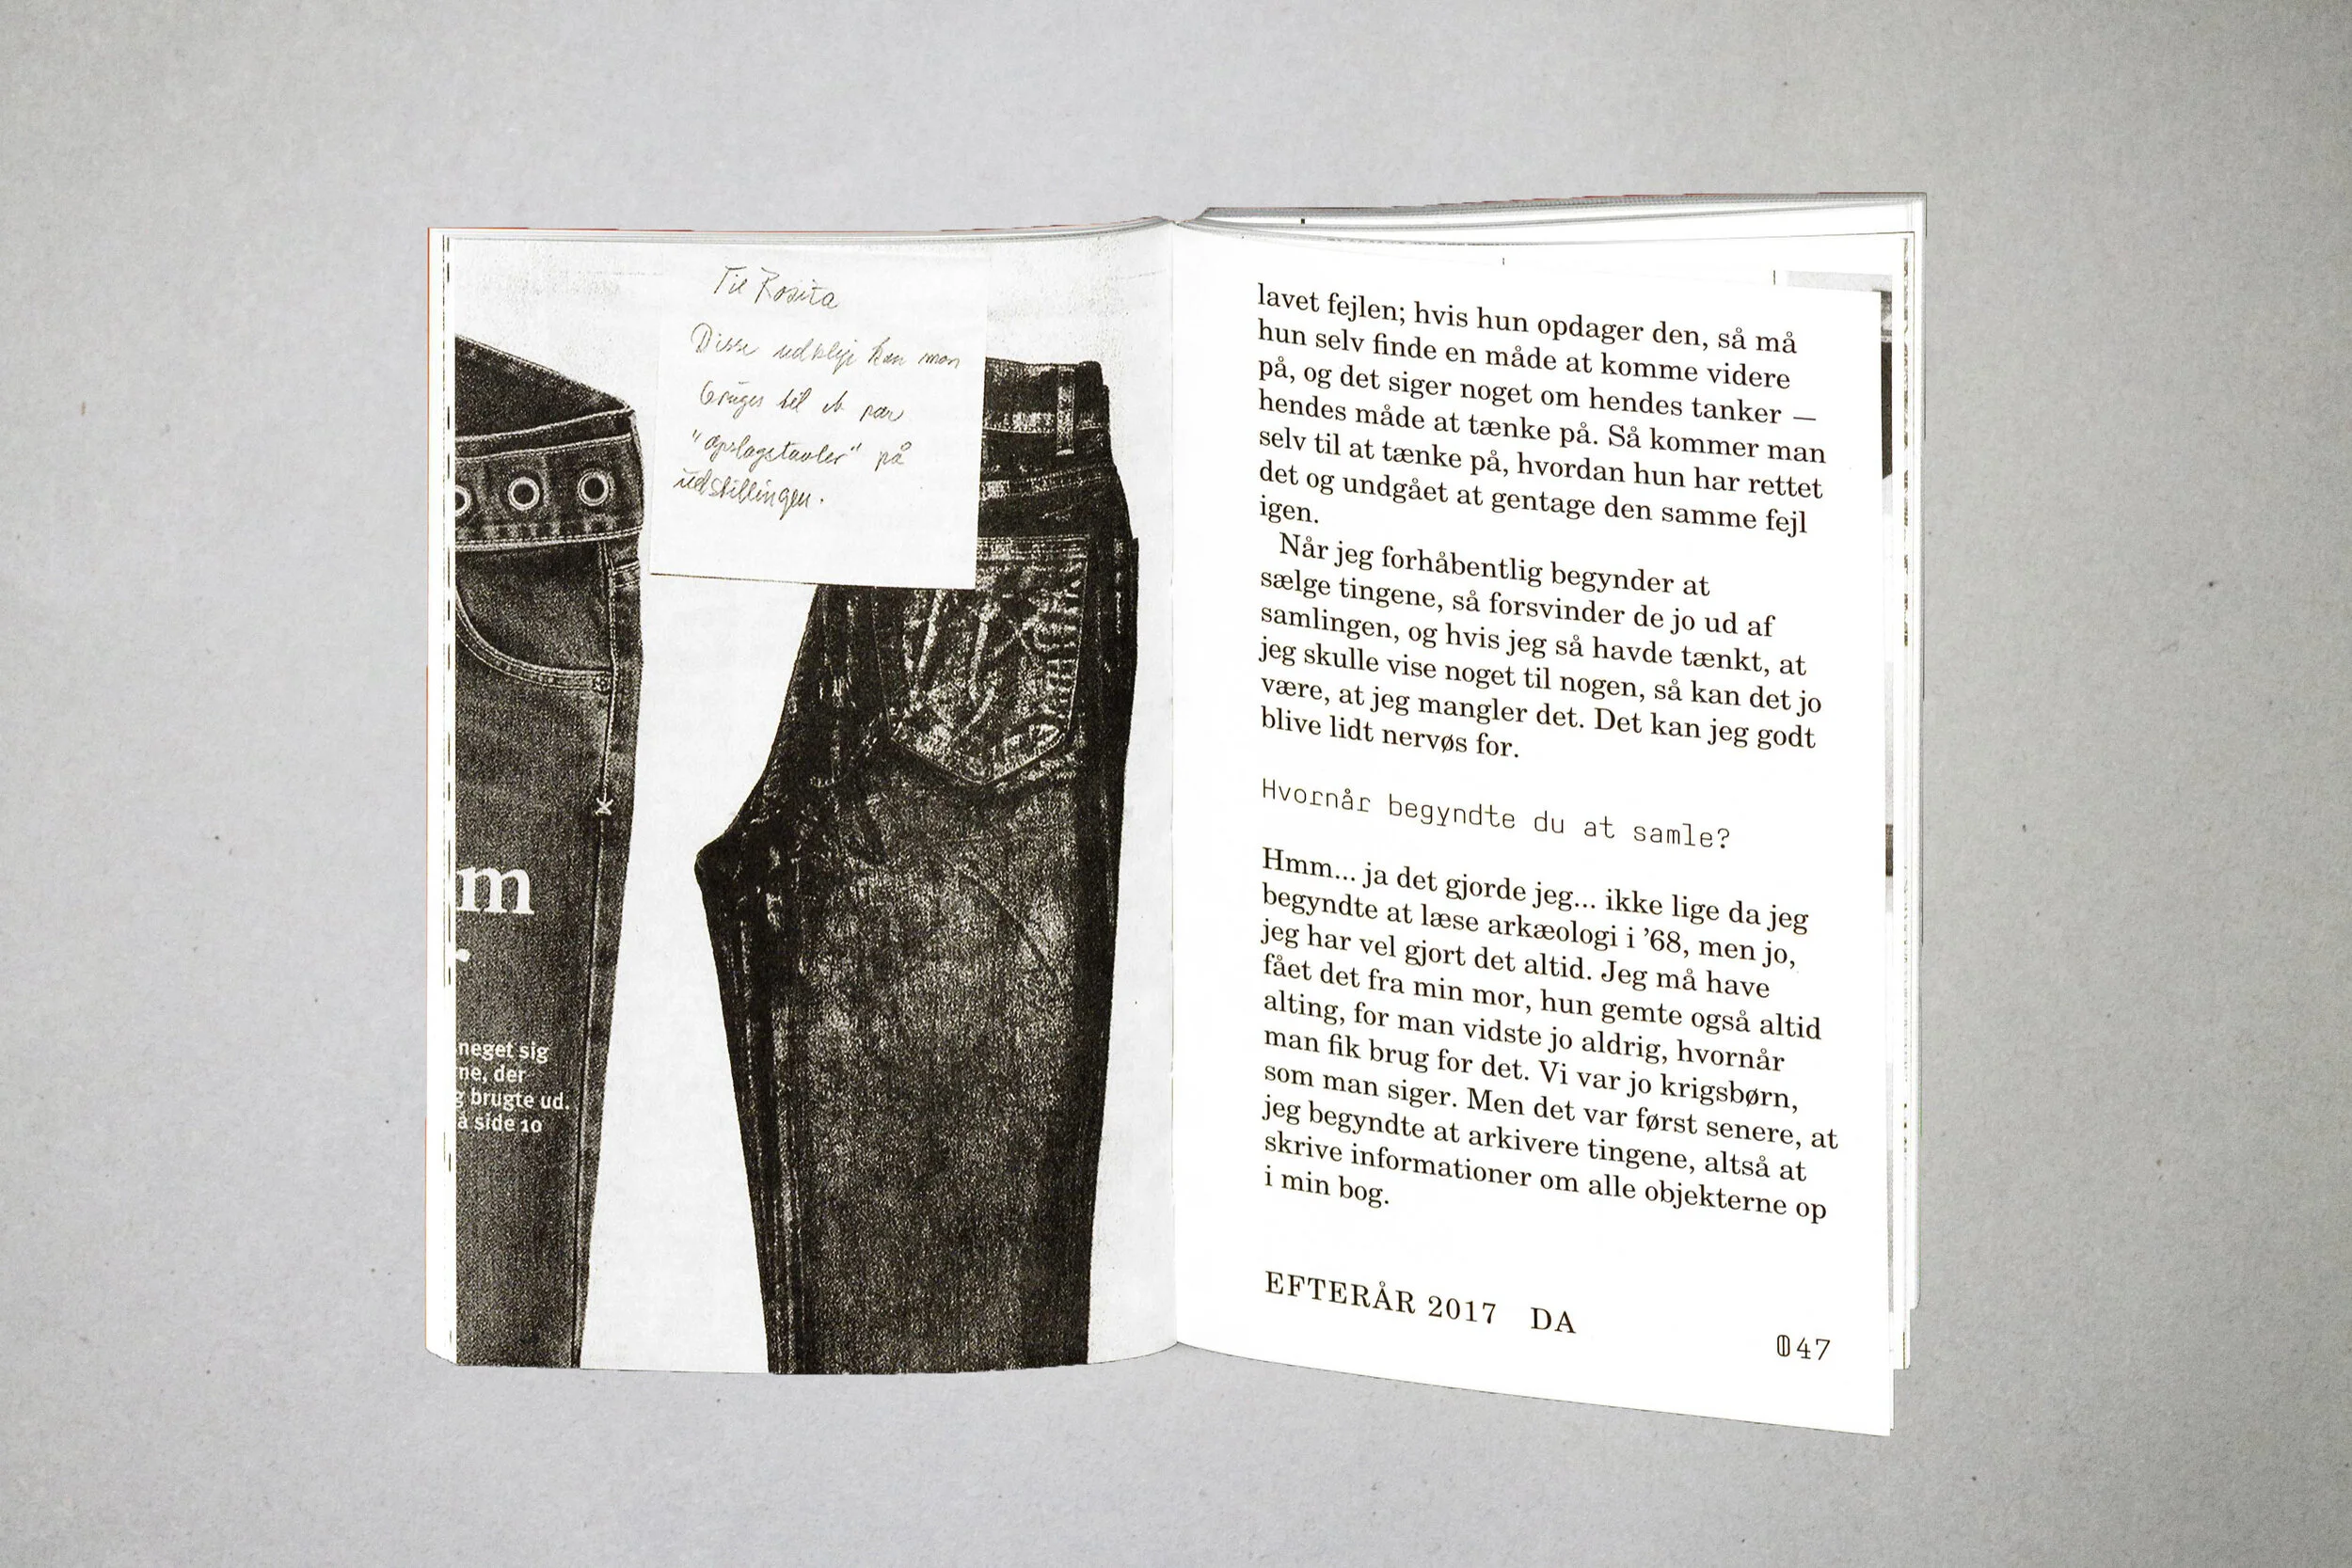 Til Rosita
Disse udklip kan man
bruges til et par
"opslagstavler" på
udstillingen.
m
neget sig
ne, der
g brugte ud.
å side 10
lavet fejlen; hvis hun opdager den, så må
hun selv finde en måde at komme videre
på, og det siger noget om hendes tanker —
hendes måde at tænke på. Så kommer man
selv til at tænke på, hvordan hun har rettet
det og undgået at gentage den samme fejl
igen.
Når jeg forhåbentlig begynder at
sælge tingene, så forsvinder de jo ud af
samlingen, og hvis jeg så havde tænkt, at
jeg skulle vise noget til nogen, så kan det jo
være, at jeg mangler det. Det kan jeg godt
blive lidt nervøs for.
Hvornår begyndte du at samle?
Hmm... ja det gjorde jeg... ikke lige da jeg
begyndte at læse arkæologi i ’68, men jo,
jeg har vel gjort det altid. Jeg må have
fået det fra min mor, hun gemte også altid
alting, for man vidste jo aldrig, hvornår
man fik brug for det. Vi var jo krigsbørn,
som man siger. Men det var først senere, at
jeg begyndte at arkivere tingene, altså at
skrive informationer om alle objekterne op
i min bog.
EFTERÅR 2017 DA
047